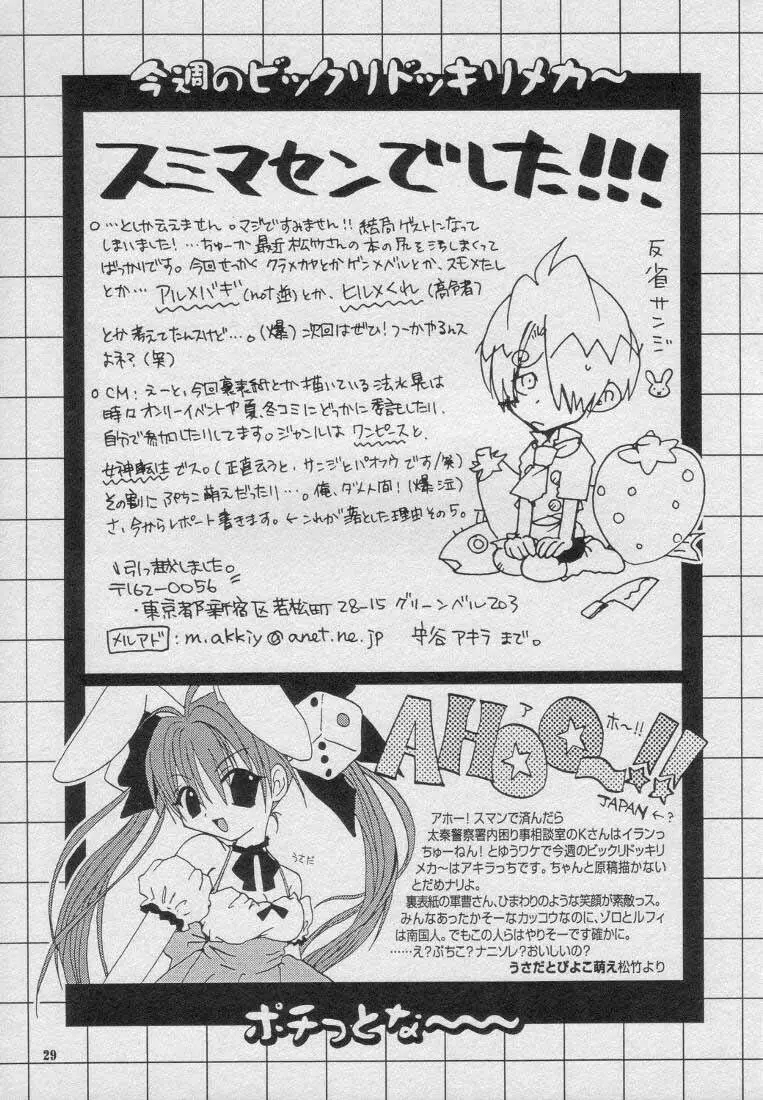 今週のビックリドッキリメカ〜
スミマセンでした!!!
○…としか云えません。マジですみません!! 結局ゲストになって
しまいました!…ちゅーか最近松竹さんの本の尻を汚しまくって
ばっかりです。今回せっかくクラメカヤとかゲンメベルとか、スモメたし
とか…アルメバギ(not逆)とか、ヒルメくれ(高齢者)
とか考えてたんスけど…。(爆)次回はぜひ!つーかやるんス
よネ?(笑)
○CM:えーと、今回裏表紙とか描いている法水晃は
時々オンリーイベントや夏、冬コミにどっかに委託したり、
自分で参加したりしてます。ジャンルはワンピースと、
女神転生でス。(正直云うと、サンジとパオフウです/笑)
その割にぷちこ萌えだったり…。俺、ダメ人間!(爆泣)
さ、今からレポート書きます。←これが落とした理由その5。
反省サンジ
引っ越しました。
〒162-0056
・東京都新宿区若松町28-15 グリーンベル203
メルアド:m.akkiy@anet.ne.jp 守谷アキラまで。
AHOO〜!!
ア
ホ〜!!
JAPAN←?
うさだ
アホー!スマンで済んだら
太秦警察署内困り事相談室のKさんはイランっ
ちゅーねん!とゆうワケで今週のビックリドッキリ
メカ〜はアキラっちです。ちゃんと原稿描かない
とだめナリよ。
裏表紙の軍曹さん、ひまわりのような笑顔が素敵っス。
みんなあったかそーなカッコウなのに、ゾロとルフィ
は南国人。でもこの人らはやりそーです確かに。
……え?ぷちこ?ナニソレ?おいしいの?
うさだとぴよこ萌え松竹より
ポチっとな〜〜〜
29